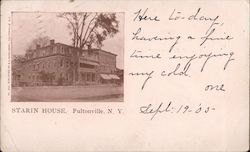 Here to-day,
having a fine
time enjoying
my cold.
one
Sept. 19-'05
STARIN HOUSE. Fultonville, N. Y.